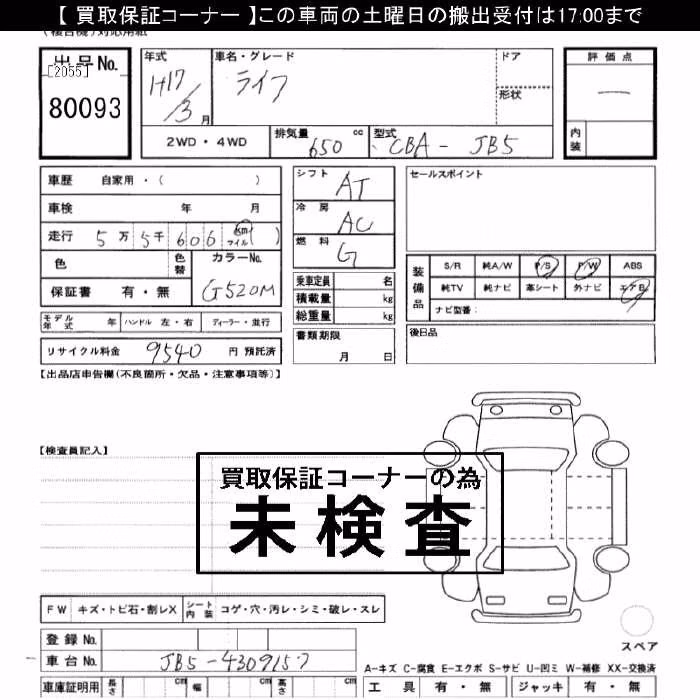 【 買取保証コーナー 】この車両の土曜日の搬出受付は17:00まで
(複合機)対応用紙
出品No.
[2055]
80093
年式
H17/3月
車名・グレード
ライフ
ドア
形状
評価点
—
内装
2WD・4WD
排気量 650 cc
型式 CBA-JB5
車歴 自家用・( )
車検 年 月
走行 5万5千606 km マイル ( )
色
色替
カラーNo.
G520M
保証書 有・無
モデル年式 年
ハンドル 左・右
ディーラー・並行
リサイクル料金 9540 円 預託済
シフト AT
冷房 AC
燃料 G
乗車定員 名
積載量 kg
総重量 kg
書類期限
月 日
セールスポイント
装備品
S/R 純A/W P/S P/W ABS
純TV 純ナビ 革シート 外ナビ エアB
ナビ型番:
後日品
【出品店申告欄(不良箇所・欠品・注意事項等)】
【検査員記入】
買取保証コーナーの為
未検査
FW キズ・トビ石・割レX
シート内装 コゲ・穴・汚レ・シミ・破レ・スレ
登録No.
車台No. JB5-4309157
車庫証明用 長さ cm 幅 cm 高さ cm
スペア
A-キズ C-腐食 E-エクボ S-サビ U-凹ミ W-補修 XX-交換済
工具 有・無 ジャッキ 有・無